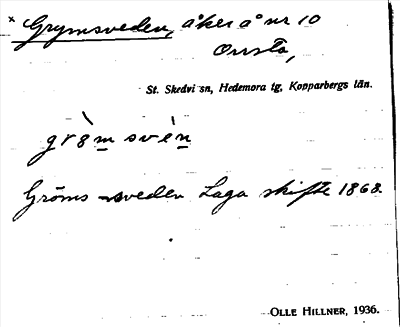 × Grymsveden, åker å nr 10
Onsta,
St. Skedvi sn, Hedemora tg, Kopparbergs län.
grö̀m svén
Gröms-sveden Laga skifte 1868.
OLLE HILLNER, 1936.